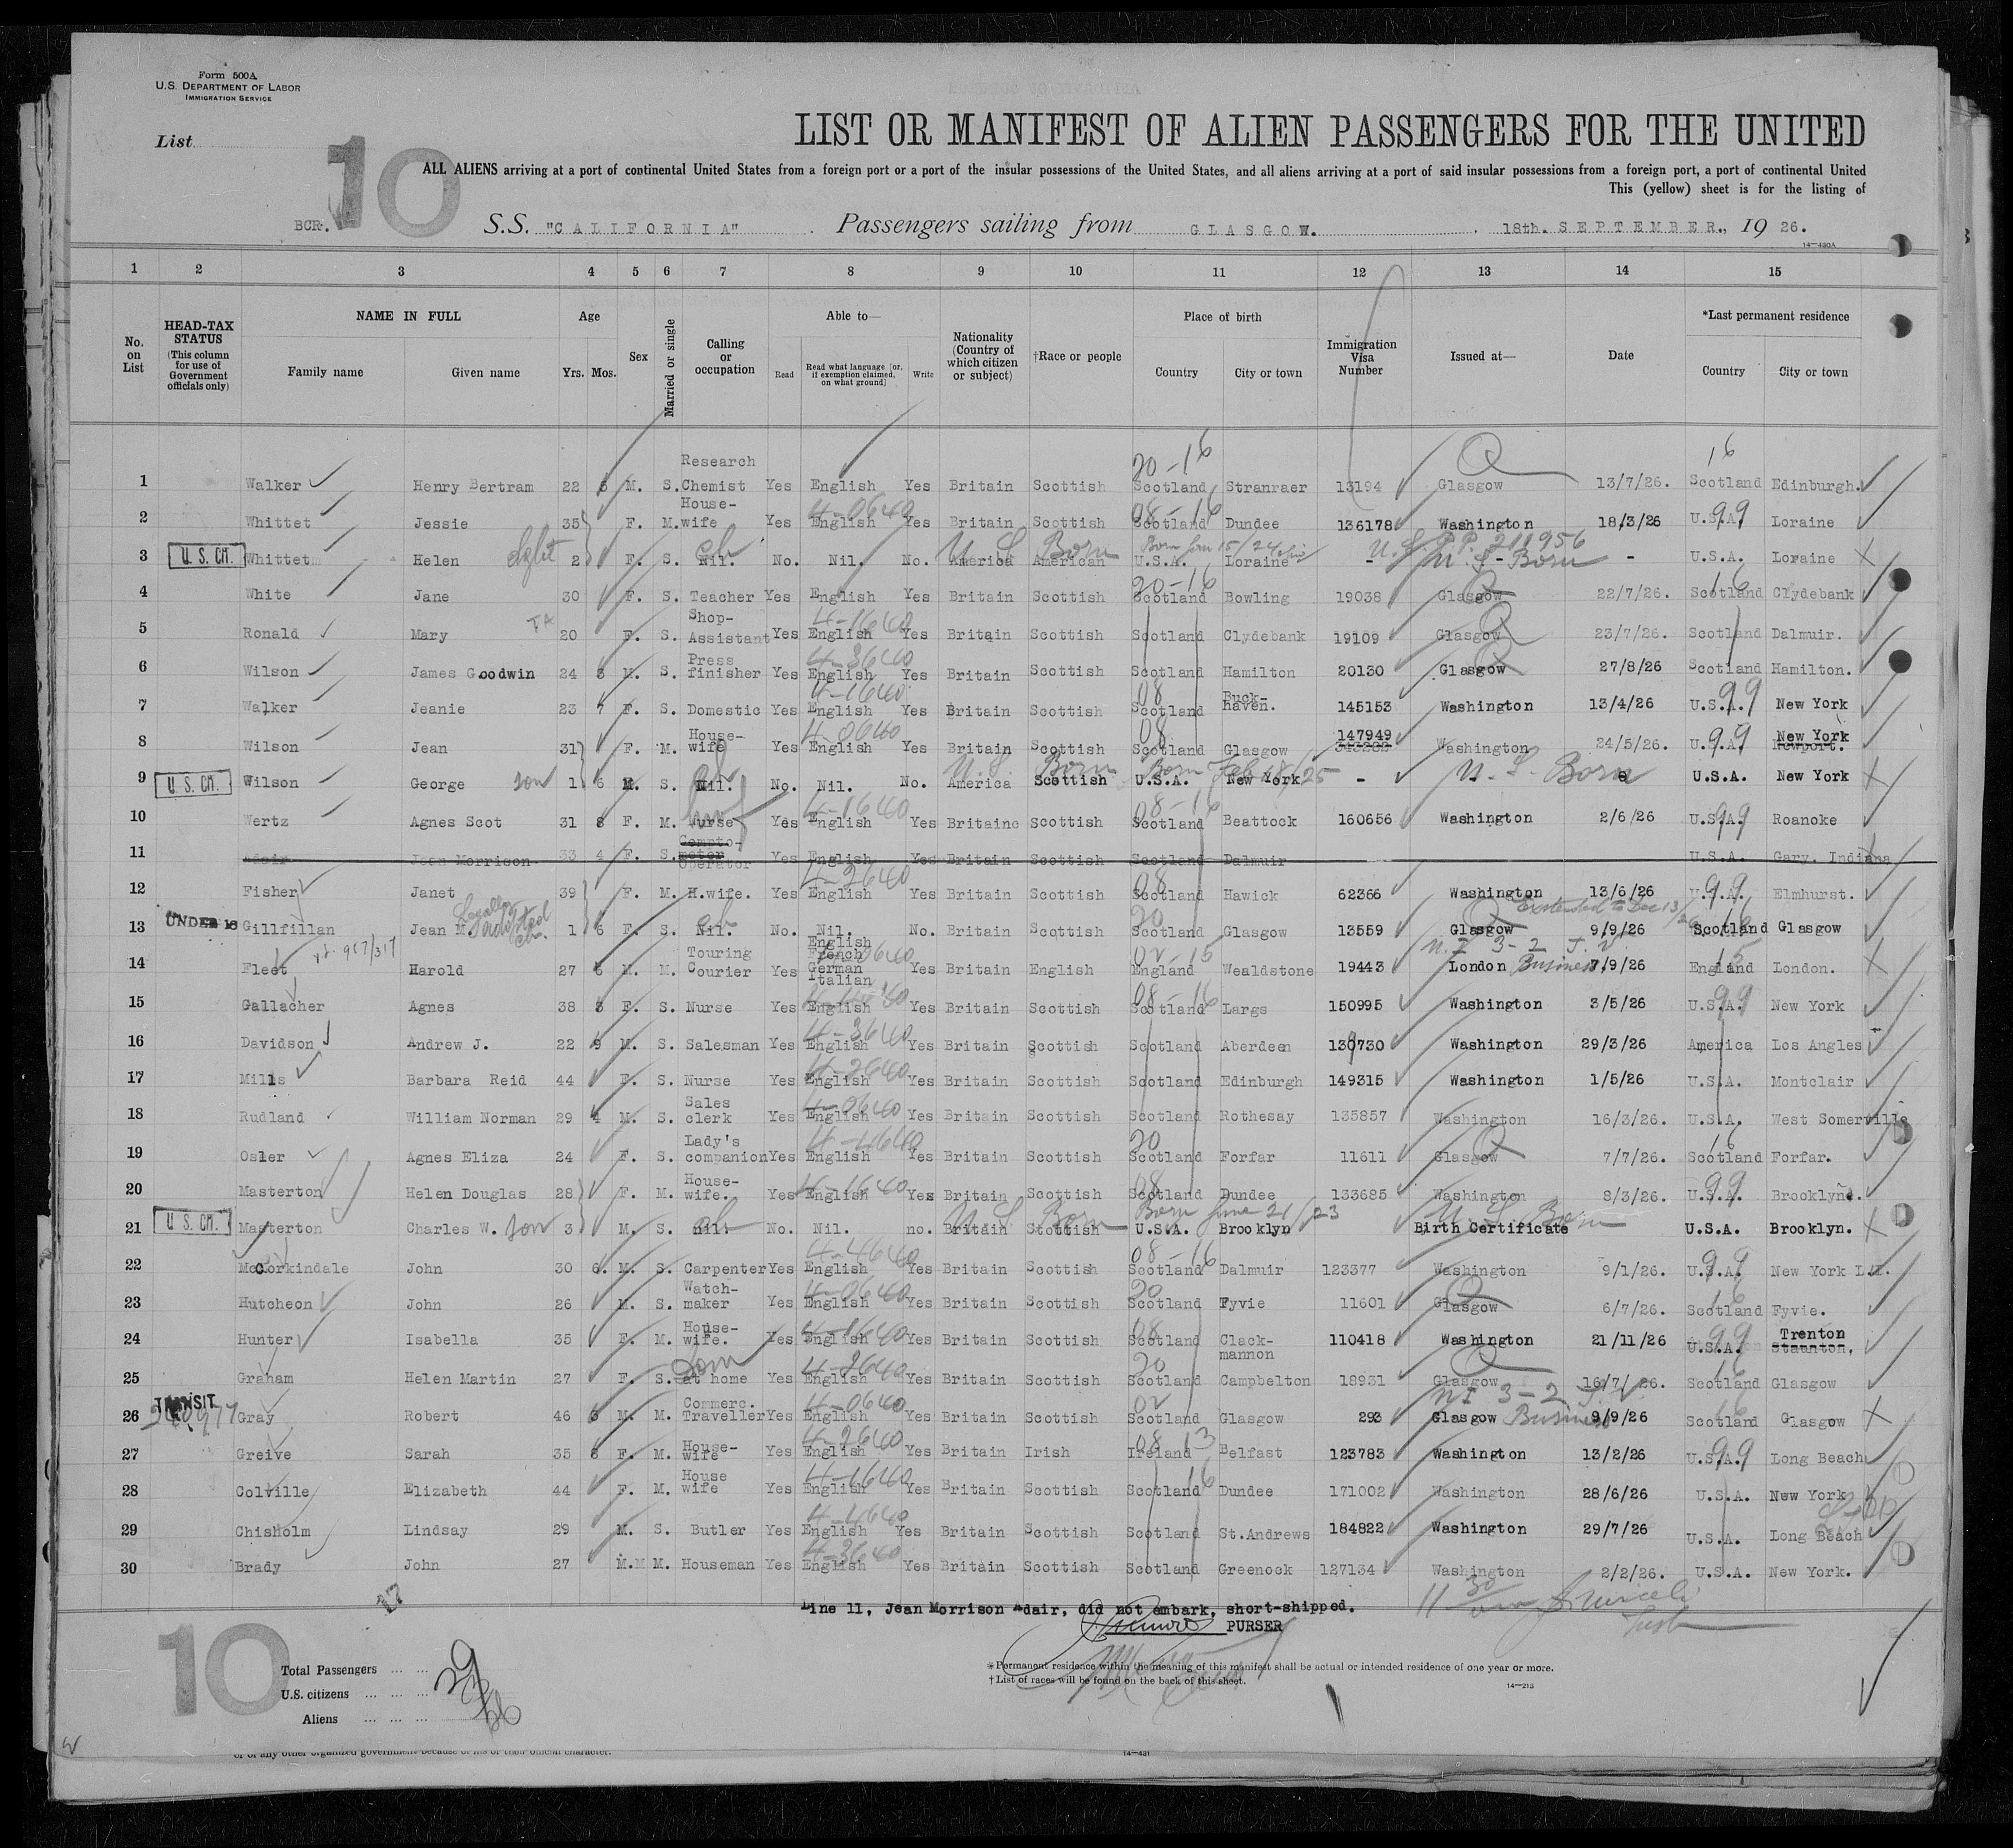 Form 500A
U.S. DEPARTMENT OF LABOR
IMMIGRATION SERVICE
List
10
LIST OR MANIFEST OF ALIEN PASSENGERS FOR THE UNITED
ALL ALIENS arriving at a port of continental United States from a foreign port or a port of the insular possessions of the United States, and all aliens arriving at a port of said insular possessions from a foreign port, a port of continental United
This (yellow) sheet is for the listing of
BCR. S.S. "CALIFORNIA" Passengers sailing from GLASGOW. 18th. SEPTEMBER., 19 26.
14—430A
1 2 3 4 5 6 7 8 9 10 11 12 13 14 15
No. on List HEAD-TAX STATUS (This column for use of Government officials only) NAME IN FULL Family name Given name Age Yrs. Mos. Sex Married or single Calling or occupation Able to— Read Read what language [or, if exemption claimed, on what ground] Write Nationality (Country of which citizen or subject) †Race or people Place of birth Country City or town Immigration Visa Number Issued at— Date *Last permanent residence Country City or town
1 Walker Henry Bertram 22 5 M. S. Research Chemist Yes English Yes Britain Scottish 20-16 Scotland Stranraer 13194 Glasgow 13/7/26. 16 Scotland Edinburgh.
2 Whittet Jessie 35 F. M. House-wife Yes 4-0640 English Yes Britain Scottish 08-16 Scotland Dundee 136178 Washington 18/3/26 99 U.S.A. Loraine
3 U.S. Cit. Whittet Helen 2 F. S. Nil. No. Nil. No. U S Born America American Born Jan 15/24 U.S.A. Loraine - U.S.P.P. 211956 U S - Born - U.S.A. Loraine
4 White Jane 30 F. S. Teacher Yes English Yes Britain Scottish 20-16 Scotland Bowling 19038 Glasgow 22/7/26. 16 Scotland Clydebank
5 Ronald Mary 20 F. S. Shop-Assistant Yes 4-1640 English Yes Britain Scottish Scotland Clydebank 19109 Glasgow 23/7/26. Scotland Dalmuir.
6 Wilson James Goodwin 24 3 M. S. Press finisher Yes 4-3640 English Yes Britain Scottish Scotland Hamilton 20130 Glasgow 27/8/26 Scotland Hamilton.
7 Walker Jeanie 23 7 F. S. Domestic Yes 4-1640 English Yes Britain Scottish 08 Scotland Buck-haven. 145153 Washington 13/4/26 99 U.S.A. New York
8 Wilson Jean 31 F. M. House-wife Yes 4-0640 English Yes Britain Scottish 08 Scotland Glasgow 147949 Washington 24/5/26. 99 U.S.A. New York Newport.
9 U.S. Cit. Wilson George son 1 6 M. S. Nil. No. Nil. No. U.S. Born America Scottish Born Feb 18/25 U.S.A. New York - U. S. Born U.S.A. New York
10 Wertz Agnes Scot 31 8 F. M. Nurse Yes 4-1640 English Yes Britainc Scottish 08-16 Scotland Beattock 160656 Washington 2/6/26 99 U.S.A. Roanoke
11 Adair Jean Morrison 33 4 F. S. operator Yes English Yes Britain Scottish Scotland Dalmuir U.S.A. Gary. Indiana
12 Fisher Janet 39 F. M. H.wife. Yes 4-2640 English Yes Britain Scottish 08 Scotland Hawick 62366 Washington 13/6/26 99 U.S.A. Elmhurst.
Extended to Dec 13/26
13 UNDER 16 Gillfillan Jean M. Legally adopted 1 6 F. S. Nil. No. Nil. No. Britain Scottish 20 Scotland Glasgow 13559 Glasgow 9/9/26 16 Scotland Glasgow
14 Fleet Harold 27 6 M. M. Touring Courier Yes English French German Italian Yes Britain English 02-15 England Wealdstone 19443 N.I 3-2 London Business 7/9/26 15 England London.
15 Gallacher Agnes 38 3 F. S. Nurse Yes English Yes Britain Scottish 08-16 Scotland Largs 150995 Washington 3/5/26 99 U.S.A. New York
16 Davidson Andrew J. 22 9 M. S. Salesman Yes 4-3640 English Yes Britain Scottish Scotland Aberdeen 130730 Washington 29/3/26 America Los Angles
17 Mills Barbara Reid 44 F. S. Nurse Yes 4-2640 English Yes Britain Scottish Scotland Edinburgh 149315 Washington 1/5/26 U.S.A. Montclair
18 Rudland William Norman 29 4 M. S. Sales clerk Yes 4-0640 English Yes Britain Scottish Scotland Rothesay 135857 Washington 16/3/26. U.S.A. West Somerville
19 Osler Agnes Eliza 24 F. S. Lady's companion Yes 4-1640 English Yes Britain Scottish 20 Scotland Forfar 11611 Glasgow 7/7/26. 16 Scotland Forfar.
20 Masterton Helen Douglas 28 F. M. House-wife. Yes 4-1640 English Yes Britain Scottish 08 Scotland Dundee 133685 Washington 8/3/26. 99 U.S.A. Brooklyn.
21 U.S. Cit. Masterton Charles W. Son 3 M. S. nil. No. Nil. no. U S Born Britain Scottish Born June 21/23 U.S.A. Brooklyn U S Born Birth Certificate U.S.A. Brooklyn.
22 McCorkindale John 30 6. M. S. Carpenter Yes 4-4640 English Yes Britain Scottish 08-16 Scotland Dalmuir 123377 Washington 9/1/26. 99 U.S.A. New York
23 Hutcheon John 26 M. S. Watch-maker Yes 4-0640 English Yes Britain Scottish 20 Scotland Fyvie 11601 Glasgow 6/7/26. 16 Scotland Fyvie.
24 Hunter Isabella 35 F. M. House-wife. Yes 4-1640 English Yes Britain Scottish 08 Scotland Clack-mannon 110418 Washington 21/11/26 99 U.S.A. Trenton Staunton,
25 Graham Helen Martin 27 F. S. Dom at home Yes 4-2640 English Yes Britain Scottish 20 Scotland Campbelton 18931 Glasgow 16/7/26. 16 Scotland Glasgow
26 TRANSIT Gray Robert 46 3 M. M. Commerc. Traveller Yes 4-0640 English Yes Britain Scottish 02 Scotland Glasgow 293 NI 3-2 Glasgow Business 9/9/26 16 Scotland Glasgow
27 Greive Sarah 35 8 F. M. House-wife Yes 4-2640 English Yes Britain Irish 08 13 Ireland Belfast 123783 Washington 13/2/26 99 U.S.A. Long Beach
28 Colville Elizabeth 44 F. M. House wife Yes 4-1640 English Yes Britain Scottish 16 Scotland Dundee 171002 Washington 28/6/26 U.S.A. New York
29 Chisholm Lindsay 29 M. S. Butler Yes 4-4640 English Yes Britain Scottish Scotland St.Andrews 184822 Washington 29/7/26 U.S.A. Long Beach
30 Brady John 27 M.M M. Houseman Yes 4-3640 English Yes Britain Scottish Scotland Greenock 127134 Washington 2/2/26. U.S.A. New York.
Line 11, Jean Morrison Adair, did not embark, short-shipped.
PURSER
10
Total Passengers ... ... 29
U.S. citizens ... ... ... 3
Aliens ... ... ... 26
*Permanent residence within the meaning of this manifest shall be actual or intended residence of one year or more.
†List of races will be found on the back of this sheet.
14—213
or of any other organized government because of his or their official character.
14—431